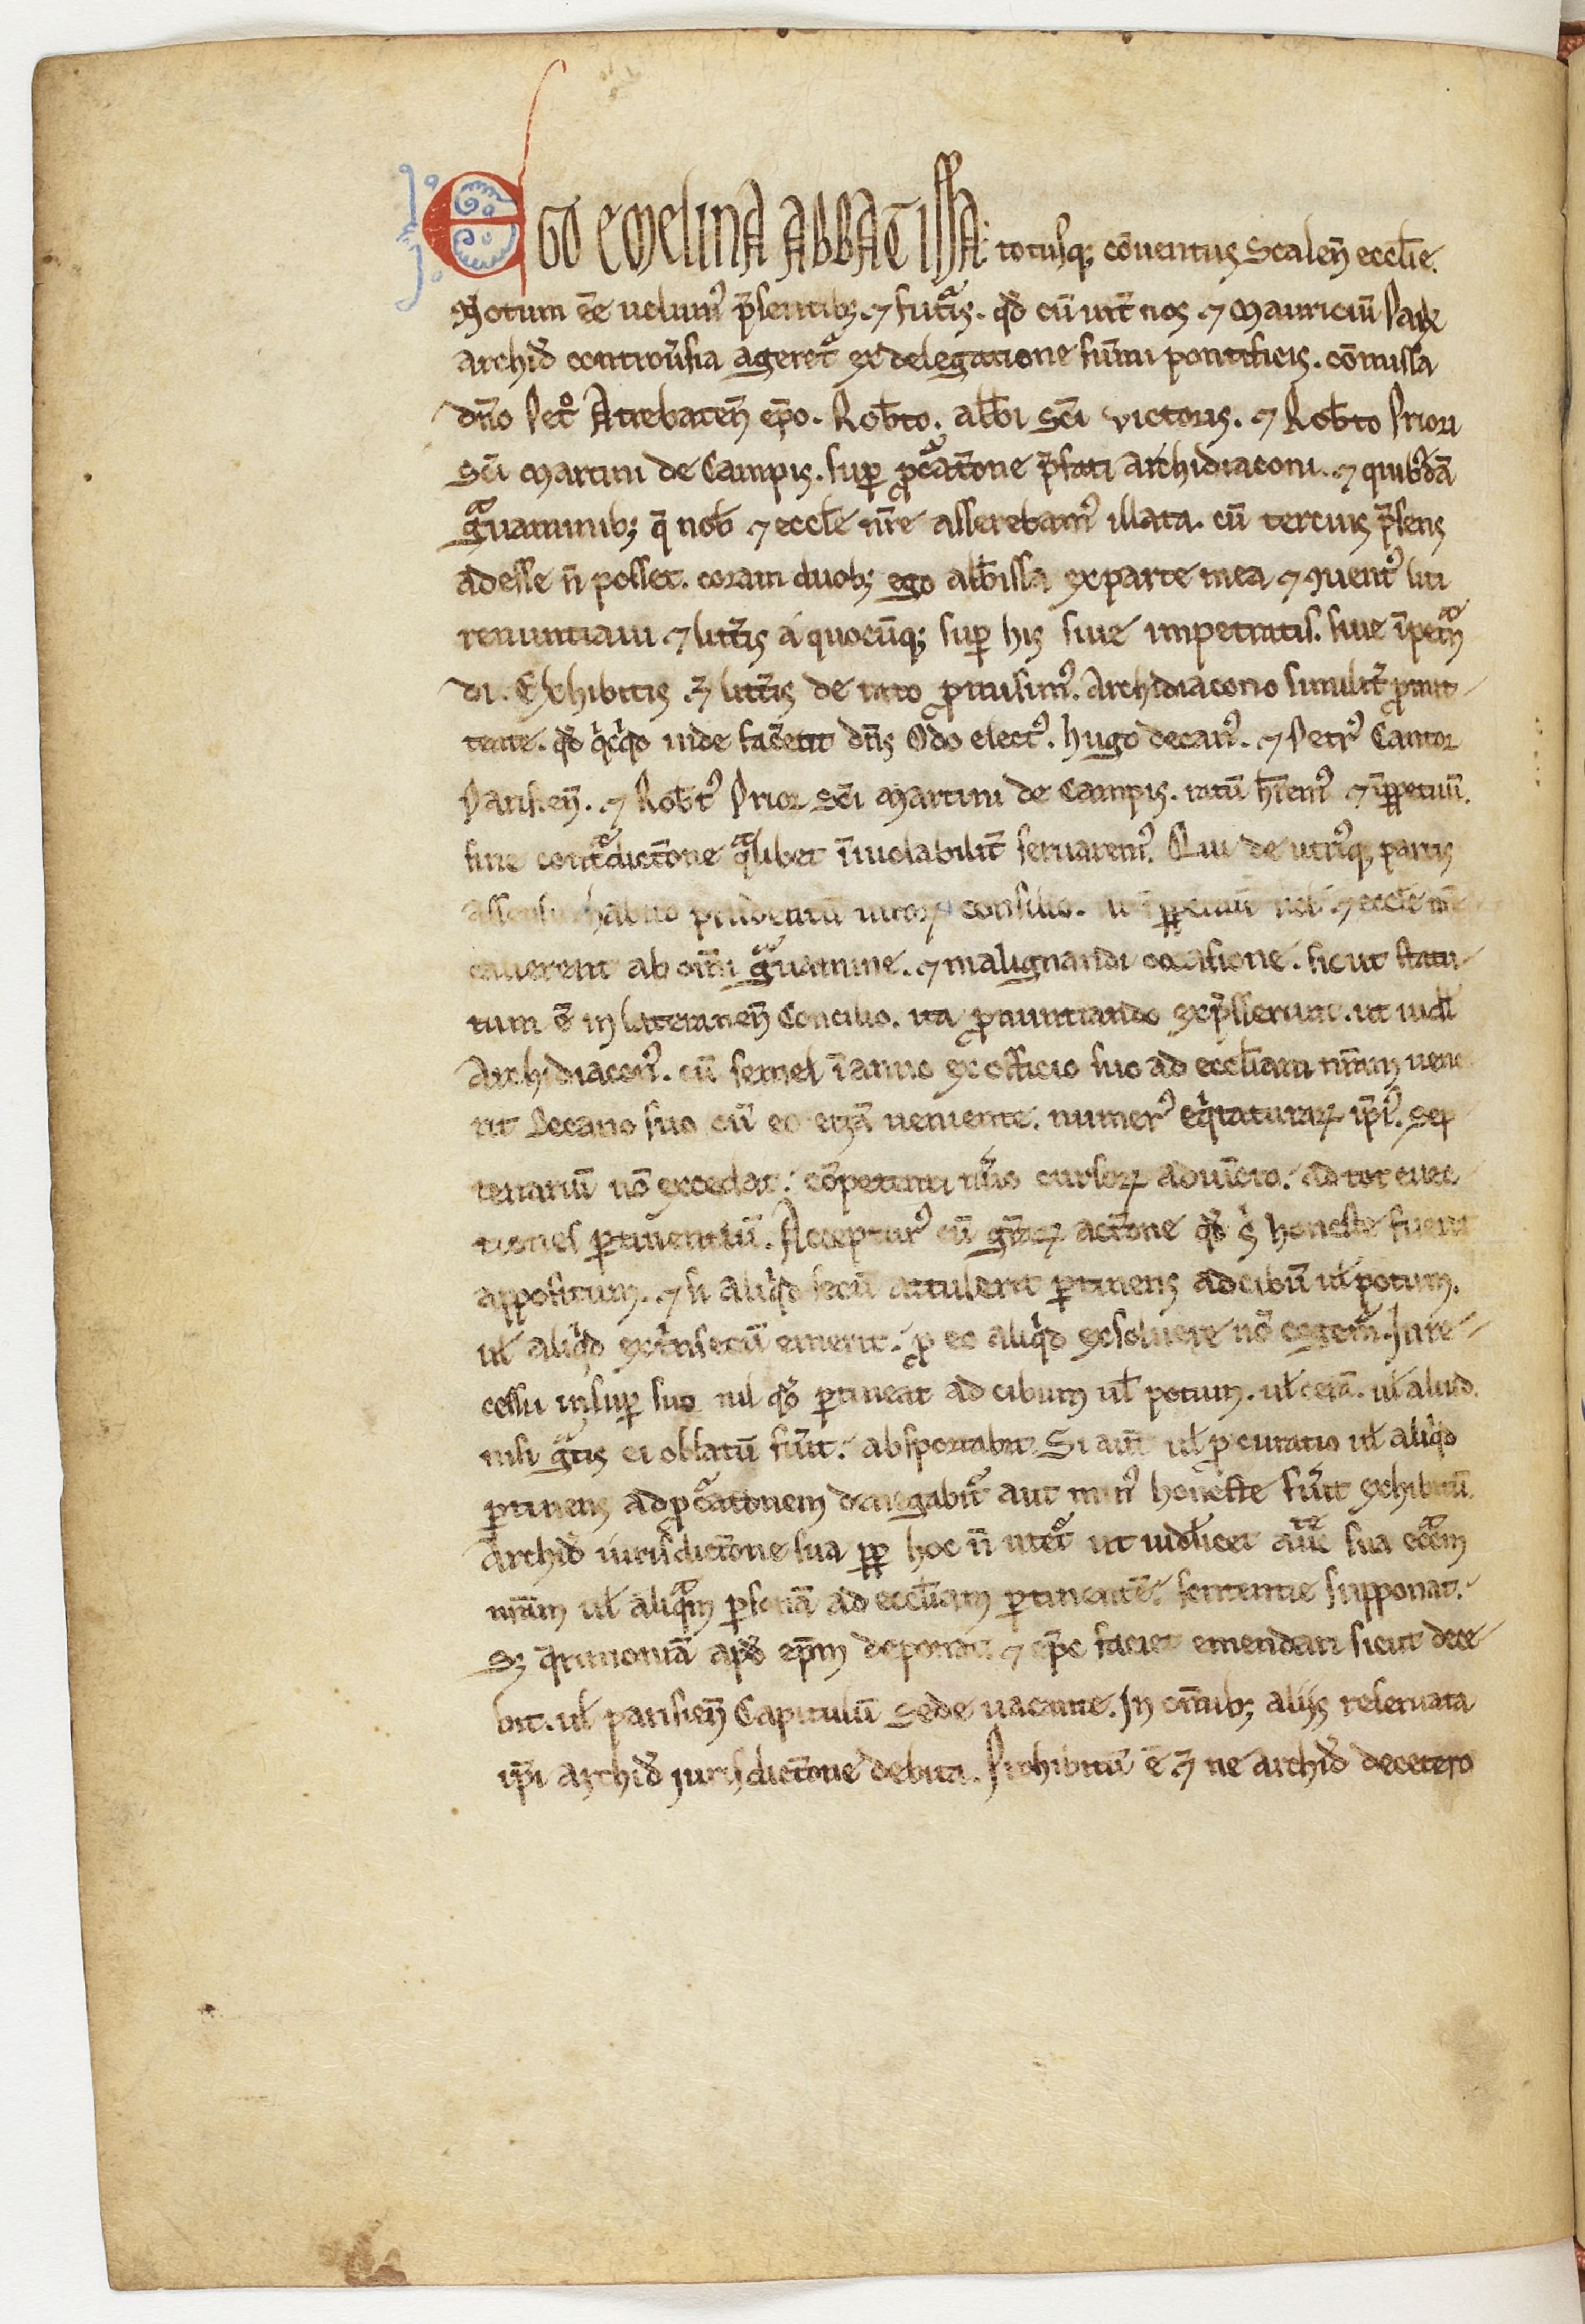 EGO EMELINA ABBATISSA. totusq; cōuentus Scaleñ eccl̄ie.
Notum eē uolum᾿ p̄sentib; ⁊ fut͛is. qd̄ cū int̄ nos ⁊ Mauriciū Paris̄
archid̄ controu͛sia ageret᷑ ex delegatione sūmi pontificis. cōmissa
dn̄o Pet᷑ Atrebateñ ep̄o. Rob̄to. abb̄i Sc̄i Victoris. ⁊ Rob̄to Priori
Sc̄i Martini de Campis. sup̱ ꝓcᷓatōne p̄fati archidiaconi. ⁊ quib᾿dā
gᷓuaminib; q̄ nob̄ ⁊ eccl̄e nr̄e asserebam᾿ illata. cū tercius p̄sens
adesse n̄ posset. coram duob; ego abb̄issa ex parte mea ⁊ ꝯuent᾿ liti
renuntiaui ⁊ litt͛is a quocūq; sup̱ his siue impetratis. siue īpetᷓn
di. Exhibitis ⁊̄ litt͛is de rato ꝓmisim᾿. Archidiacono similit͛ ꝓmit-
tente. qd̄ qͥcqͥd inde fac̄ent dn̄s Odo elect᾿. hugo decan᾿. ⁊ Petr᾿ Cantor
Parisieñ. ⁊ Rob̄t᾿ Prior Sc̄i Martini de Campis. ratū h̄rem᾿ ⁊ īꝑpetuū.
sine contᷓdictōne qᷓlibet īuiolabilit͛ seruarem᾿. Qui de utriᷤq; partis
assensu habito prudentū uiroꝝ consilio. ut īꝑpetuū nob̄ ⁊ eccl̄e nr̄e
cauerent ab om̄i gᷓuamine. ⁊ malignandi occasione. sicut statu-
tum ē in lateraneñ Concilio. ita ꝓnuntiando exp̄sserunt. ut uidl̄
Archidiacon᾿. cū semel ī anno ex officio suo ad eccl̄iam nr̄am uene
rit Decano suo cū eo etiā ueniente. numer᾿ eqͥtaturaꝝ ip̄i᾿. Sep
tenariū nō excedat. cōpetenti num͛o cursoꝝ adiūcto. ad tot euec-
tiones ꝑtinentiū. Accepturᷤ cū gr̄aꝝ actōne qd̄ s͛ honeste fuerit
appositum. ⁊ si aliqͥd secū attulerit ꝑtinens ad cibū ul̄ potum.
ul̄ aliqͥd extͥnsecus emerit. ꝓ eo aliqͥd exsoluere nō cogem᷑. In re-
cessu insup̱ suo nil qd̄ ꝑtineat ad cibum ul̄ potum. ul̄ cerā. ul̄ aliud.
nisi gᷓtis ei oblatū fu͛it. absportabit. Si aut̄ ul̄ ꝓcuratio ul̄ aliqͥd
ꝑtinens ad ꝓcᷓatonem denegabit᷑ aut min᾿ honeste fu͛it exhibitū.
Archid̄ iurisdictōne sua ꝓpt̄ hoc n̄ utet᷑ ut uidelicet aucᵗᵉ sua eccᷓam
nr̄am ul̄ aliqᷓm ꝑsonā ad eccl̄iam ꝑtinentē. sententie supponat.
S; q̄rimoniā apd̄ ep̄m deponat ⁊ ep̄c faciet emendari sicut dece-
bit. ul̄ parisieñ Capitulū Sede uacante. In om̄ib; aliis reseruata
ip̄i archid̄ jurisdictōne debita. Prohibitū ē ⁊̄ ne archid̄ decetero